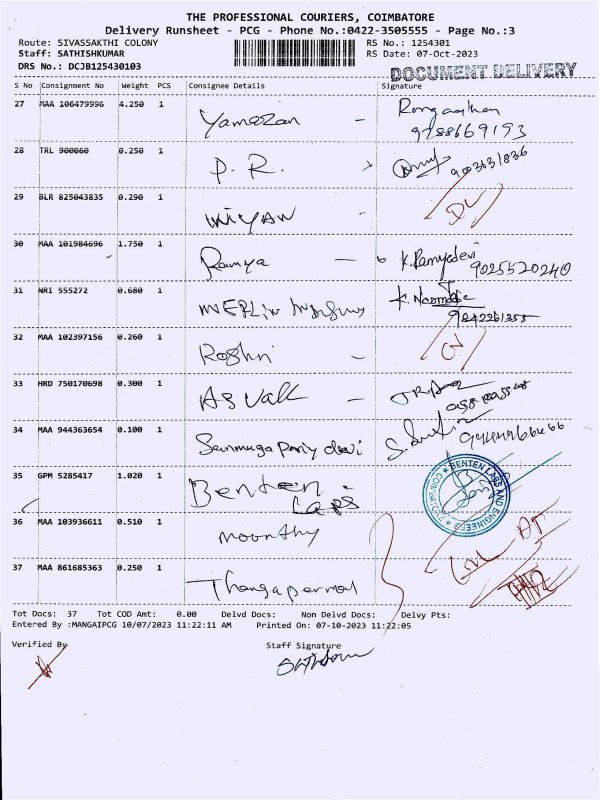 THE PROFESSIONAL COURIERS, COIMBATORE
Delivery Runsheet - PCG - Phone No.:0422-3505555 - Page No.:3
Route: SIVASSAKTHI COLONY RS No.: 1254301
Staff: SATHISHKUMAR RS Date: 07-Oct-2023
DRS No.: DCJB125430103
DOCUMENT DELIVERY
S No Consignment No Weight PCS Consignee Details Signature
27 MAA 106479996 4.250 1 Yamazan -
9788669193
28 TRL 900060 0.250 1 P. R.
29 BLR 825043835 0.290 1 INIYAN -
30 MAA 101984696 1.750 1 Ramya - K. Ramyadevi
9025520240
31 NRI 555272 0.680 1 MERLIN
32 MAA 102397156 0.260 1 Roshni -
33 HRD 750170698 0.300 1 AS Vall -
34 MAA 944363654 0.100 1 Sanmuga Pariy devi
35 GPM 5285417 1.020 1 Benten
Laps
BENTEN LABS AND ENGINEERS
COIMBATORE
36 MAA 103936611 0.510 1 moorthy
37 MAA 861685363 0.250 1 Thangapermal
Tot Docs: 37 Tot COD Amt: 0.00 Delvd Docs: Non Delvd Docs: Delvy Pts:
Entered By :MANGAIPCG 10/07/2023 11:22:11 AM Printed On: 07-10-2023 11:22:05
Verified By Staff Signature